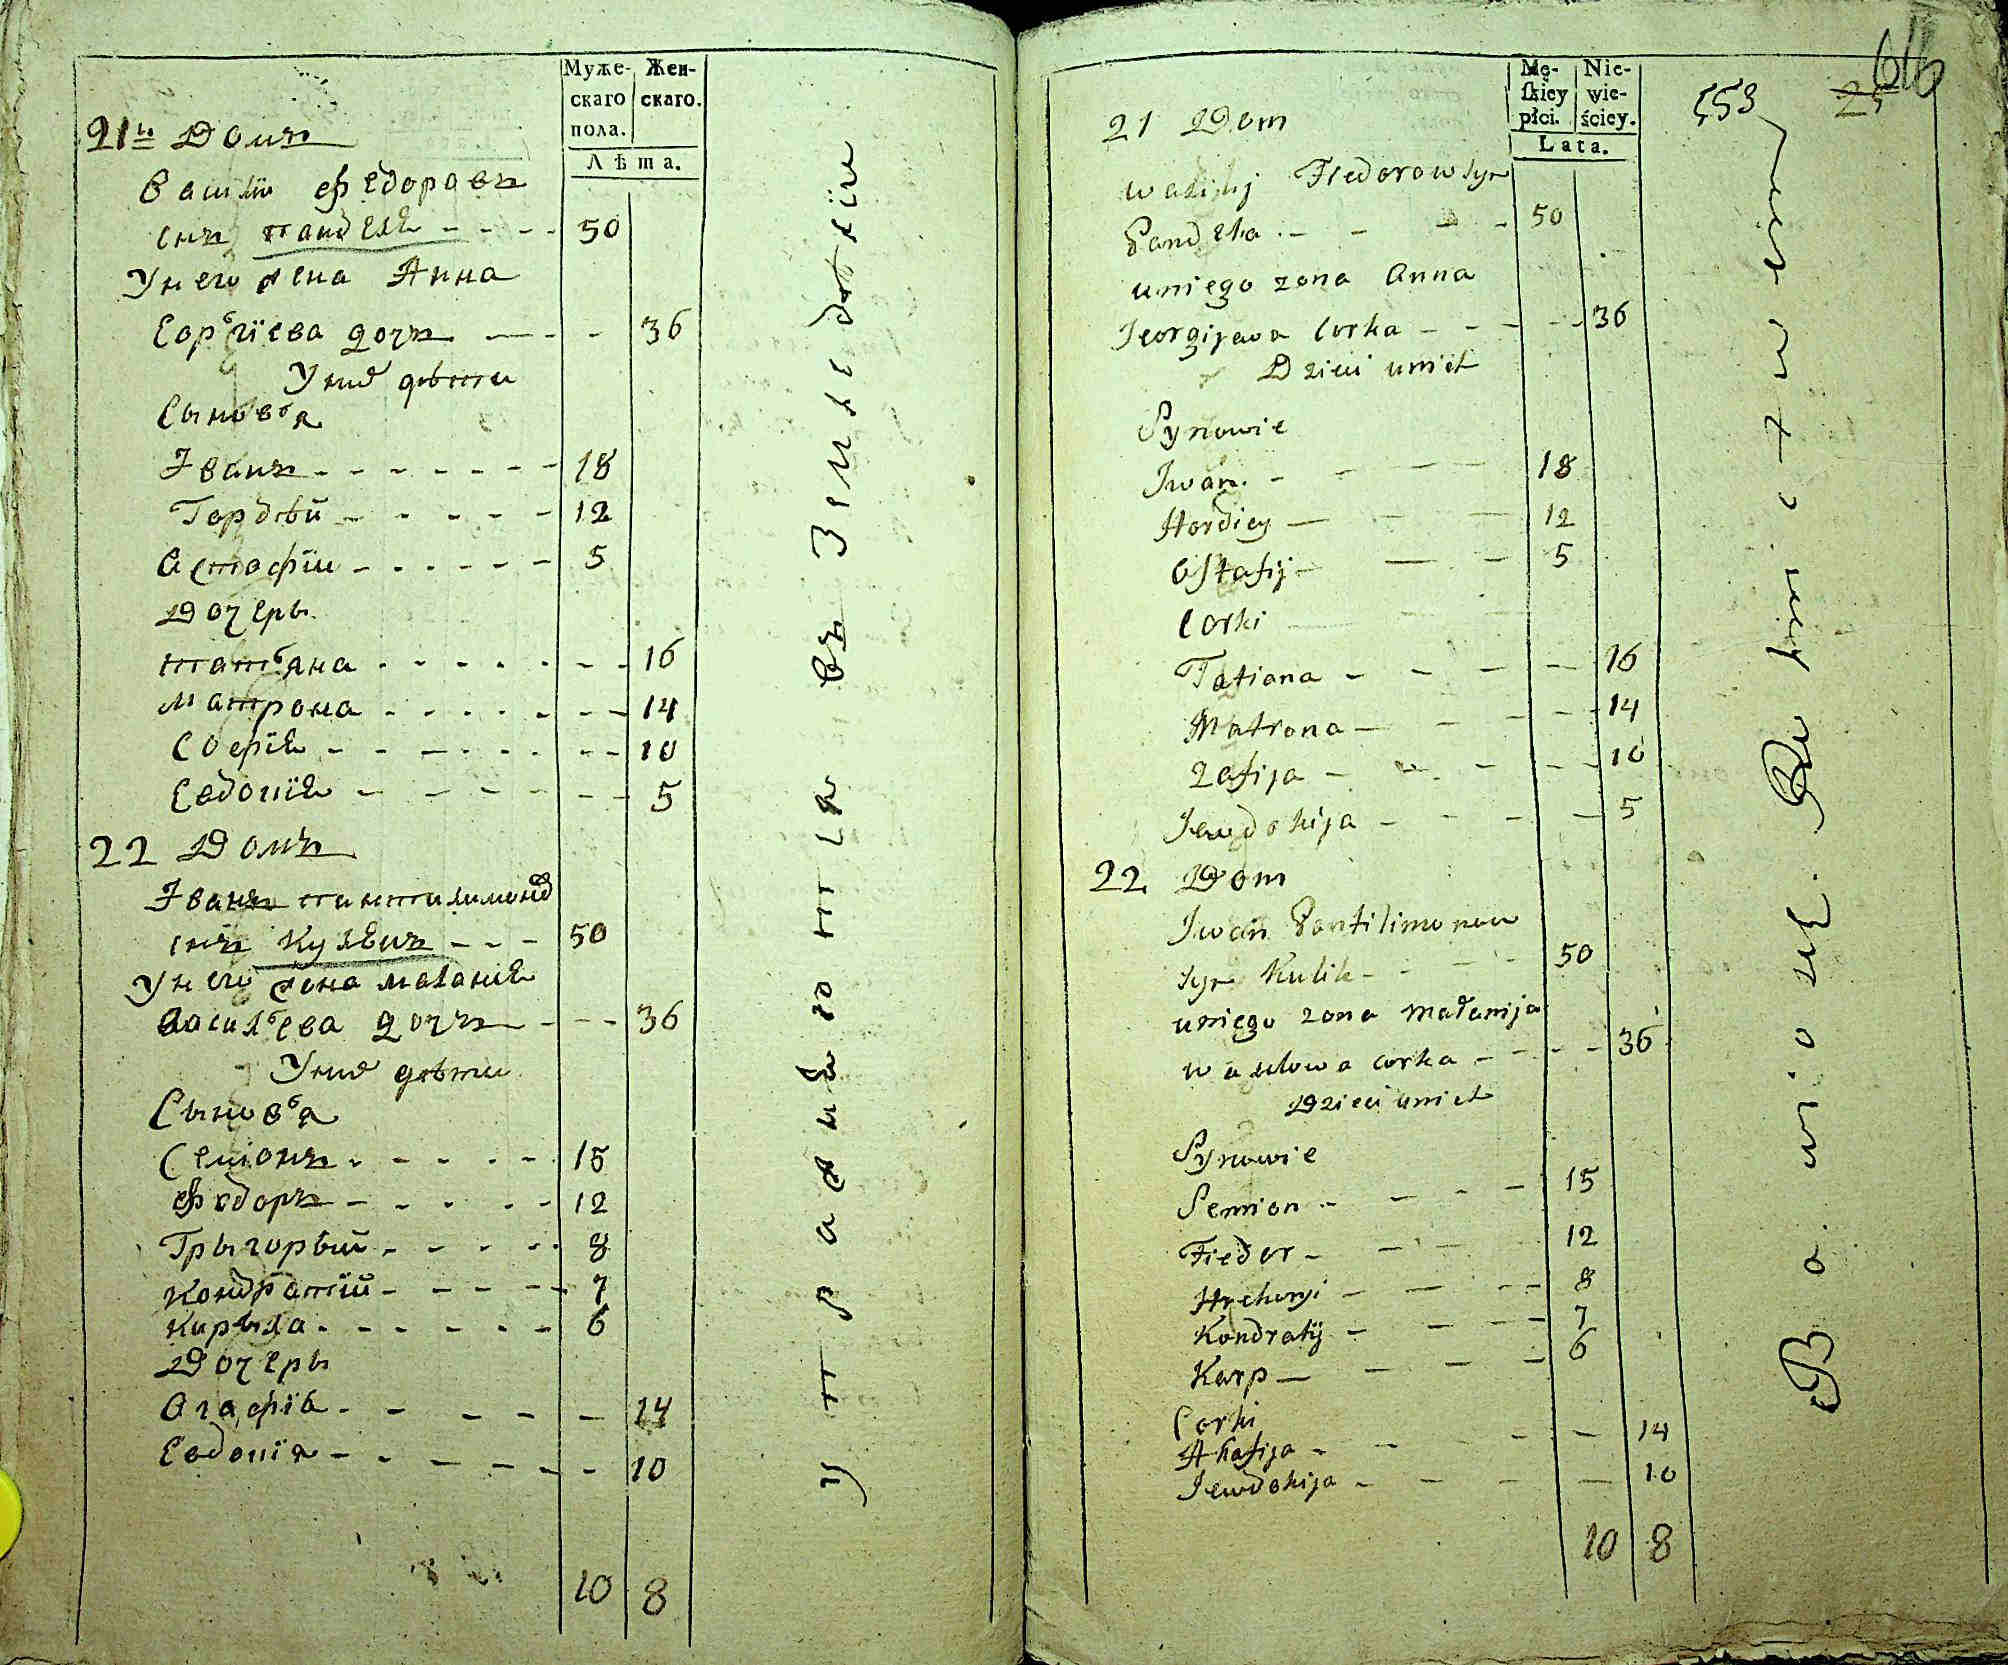 Муже-
скаго
пола.
Жен-
скаго.
Лѣта.
21й Домъ
Василїй Федоровъ
снъ Пандека 50
У него жена Анна
Еорьгїева дочъ 36
У нихъ дѣти
Сыновья
Іванъ 18
Гордѣй 12
Астафїй 5
Дочеры
Татьяна 16
Матрона 14
Софїя 10
Евдокїя 5
22 Домъ
Іванъ Пантилимоновъ
снъ Куликъ 50
У него жена Маланїя
Васильева дочъ 36
У нихъ дѣти
Сыновья
Семіонъ 15
Федоръ 12
Грыгорый 8
Кондратїй 7
Кирыла 6
Дочеры
Агафїя 14
Евдокїя 10
10 8
упражняются въ Земледѣлїи
Mę-
ſkiey
płci.
Nie-
wie-
ściey.
Lata.
553
25
616
21 Dom
Wasilij Fiedorow syn
Pandeka 50
u niego zona Anna
Jeorgijewa Corka 36
Dzieci u nich
Synowie
Jwan 18
Hordiey 12
Ostafij 5
Corki
Tatiana 16
Matrona 14
Zofija 10
Jewdokija 5
22 Dom
Jwan Pantilimonow
syn Kulik 50
u niego zona Małanija
corka 36
Dzieci u nich
Synowie
Semion 15
Fiedor 12
Hrehoryi 8
Kondratij 7
Karp 6
Corki
Ahafija 14
Jewdokija 10
10 8